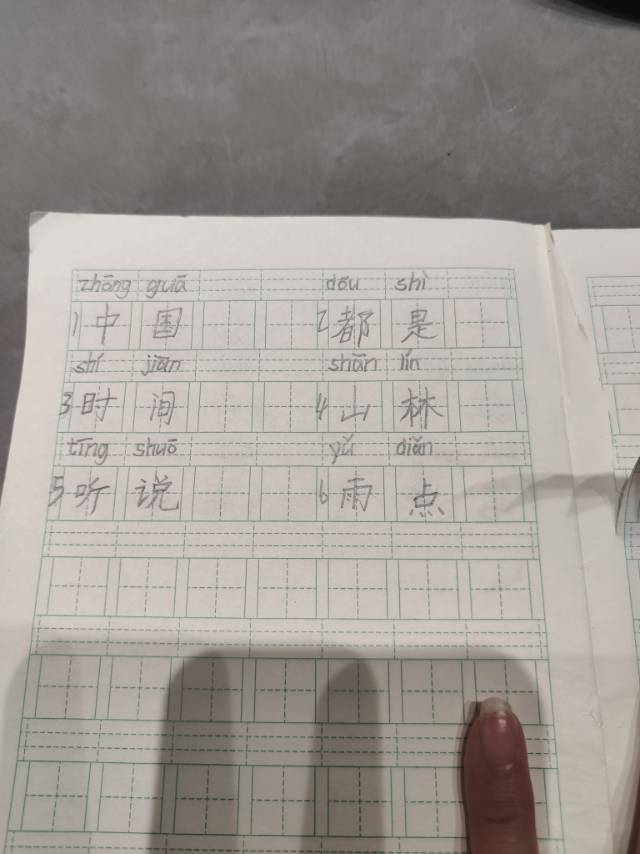 zhōng guā dōu shì
1 中国 2 都是
shí jiān shān lín
3 时间 4 山林
tīng shuō yǔ diǎn
5 听说 6 雨点